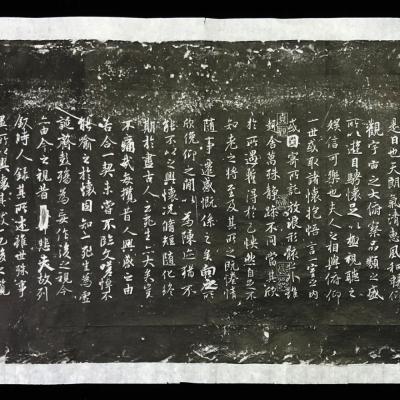 是日也天朗氣清惠風和暢仰
觀宇宙之大俯察品類之盛
所以遊目騁懷足以極視聽之
娛信可樂也夫人之相與俯仰
一世或取諸懷抱悟言一室之內
或因寄所託放浪形骸之外雖
趣舍萬殊靜躁不同當其欣
於所遇暫得於己怏然自足不
知老之將至及其所之既惓情
隨事遷感慨係之矣向之所
欣俛仰之間以為陳迹猶不
能不以之興懷況脩短隨化終
期於盡古人云死生亦大矣豈
不痛哉每攬昔人興感之由
若合一契未嘗不臨文嗟悼不
能喻之於懷固知一死生為虛
誕齊彭殤為妄作後之視今
亦由今之視昔悲夫故列
敘時人錄其所述雖世殊事
異所以興懷其致一也後之覽